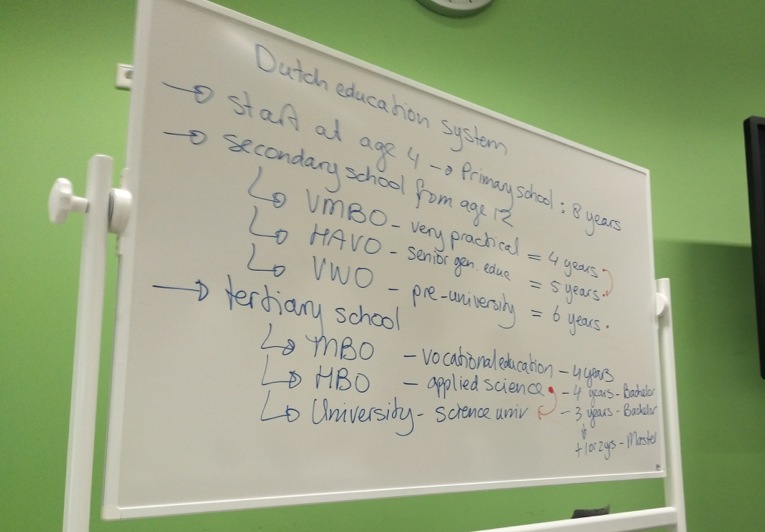 Dutch education system
→ start at age 4 → Primary school : 8 years
→ secondary school from age 12
↳ VMBO - very practical = 4 years
↳ HAVO - senior gen. educ = 5 years
↳ VWO - pre-university = 6 years
→ tertiary school
↳ MBO - vocational education - 4 years
↳ HBO - applied science - 4 years - Bachelor
↳ University - science univ - 3 years - Bachelor
+ 1 or 2 yrs - Master